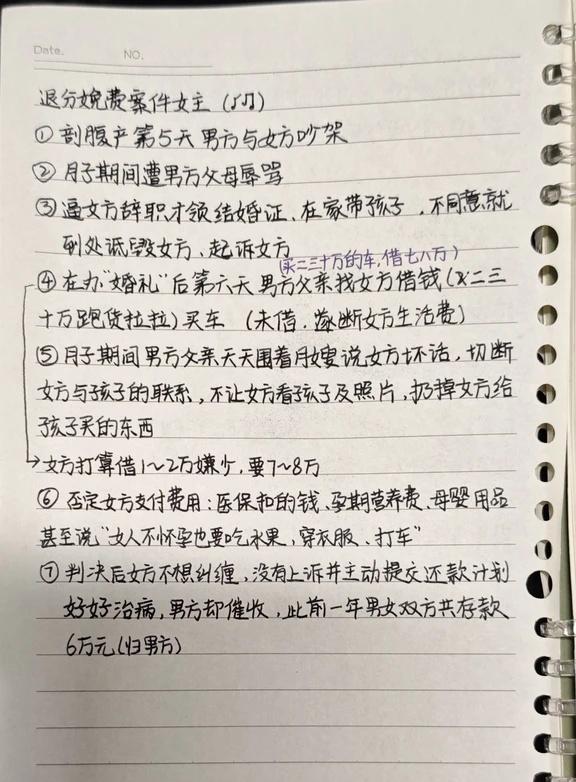 Date.
NO.
退分娩费案件女主
① 剖腹产第5天男方与女方吵架
② 月子期间遭男方父母辱骂
③ 逼女方辞职才领结婚证、在家带孩子，不同意就
到处诋毁女方、起诉女方
(买二三十万的车,借七八万)
④ 在办"婚礼"后第六天男方父亲找女方借钱(买二三
十万跑货拉拉)买车 (未借，断女方生活费)
⑤ 月子期间男方父亲天天围着月嫂说女方坏话，切断
女方与孩子的联系，不让女方看孩子及照片，扔掉女方给
孩子买的东西
女方打算借1~2万嫌少，要7~8万
⑥ 否定女方支付费用：医保扣的钱、孕期营养费、母婴用品
甚至说"女人不怀孕也要吃水果，穿衣服、打车"
⑦ 判决后女方不想纠缠，没有上诉并主动提交还款计划
好好治病，男方却催收，此前一年男女双方共存款
6万元(归男方)